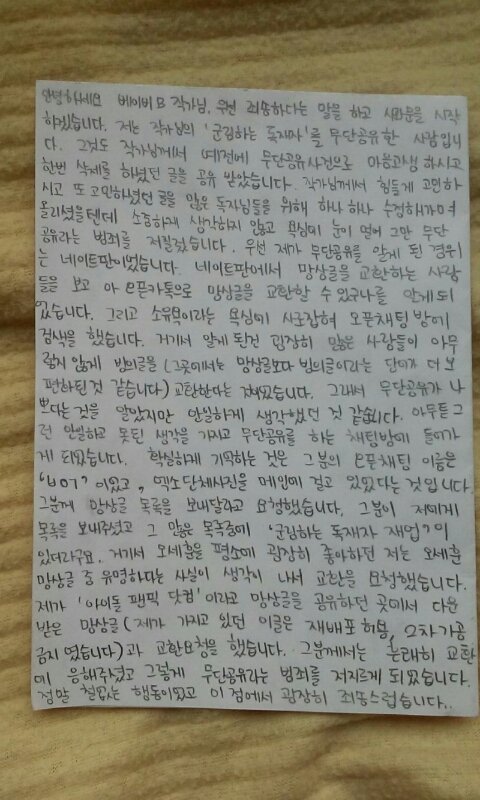 안녕하세요 베이비B 작가님. 우선 죄송하다는 말을 하고 사과문을 시작
하겠습니다. 저는 작가님의 '군림하는 독재자'를 무단공유한 사람입니
다. 그것도 작가님께서 예전에 무단공유사건으로 마음고생 하시고
한번 삭제를 하셨던 글을 공유 받았습니다. 작가님께서 힘들게 고민하
시고 또 고민하셨던 글을 많은 독자님들을 위해 하나 하나 수정해가며
올리셨을텐데 소중하게 생각하지 않고 욕심에 눈이 멀어 그만 무단
공유라는 범죄를 저질렀습니다. 우선 제가 무단공유를 알게 된 경위
는 네이트판이었습니다. 네이트판에서 망상글을 교환하는 사람
들을 보고 아 오픈카톡으로 망상글을 교환할 수 있구나를 알게되
었습니다. 그리고 소유욕이라는 욕심에 사로잡혀 오픈채팅방에
검색을 했습니다. 거기서 알게 된건 굉장히 많은 사람들이 아무
렇지 않게 빙의글을 (그곳에서는 망상글보다 빙의글이라는 단어가 더 보
편화된것 같습니다) 교환한다는 것이었습니다. 그래서 무단공유가 나
쁘다는 것을 알았지만 안일하게 생각했던 것 같습니다. 아무튼 그
런 안일하고 못된 생각을 가지고 무단공유를 하는 채팅방에 들어가
게 되었습니다. 확실하게 기억하는 것은 그분의 오픈채팅 이름은
이었고, 엑소단체사진을 메인에 걸고 있었다는 것입니다.
그분께 망상글 목록을 보내달라고 요청했습니다. 그분이 저에게
목록을 보내주셨고 그 많은 목록중에 '군림하는 독재자 재업'이
있더라구요. 거기서 오세훈을 평소에 굉장히 좋아하던 저는 오세훈
망상글 중 유명하다는 사실이 생각이 나서 교환을 요청했습니다.
제가 '아이돌 팬픽 닷컴'이라고 망상글을 공유하던 곳에서 다운
받은 망상글(제가 가지고 있던 이글은 재배포 허용, 2차가공
금지 였습니다)과 교환요청을 했습니다. 그분께서는 흔쾌히 교환
에 응해주셨고 그렇게 무단공유라는 범죄를 저지르게 되었습니다.
정말 철없는 행동이었고 이 점에서 굉장히 죄송스럽습니다..